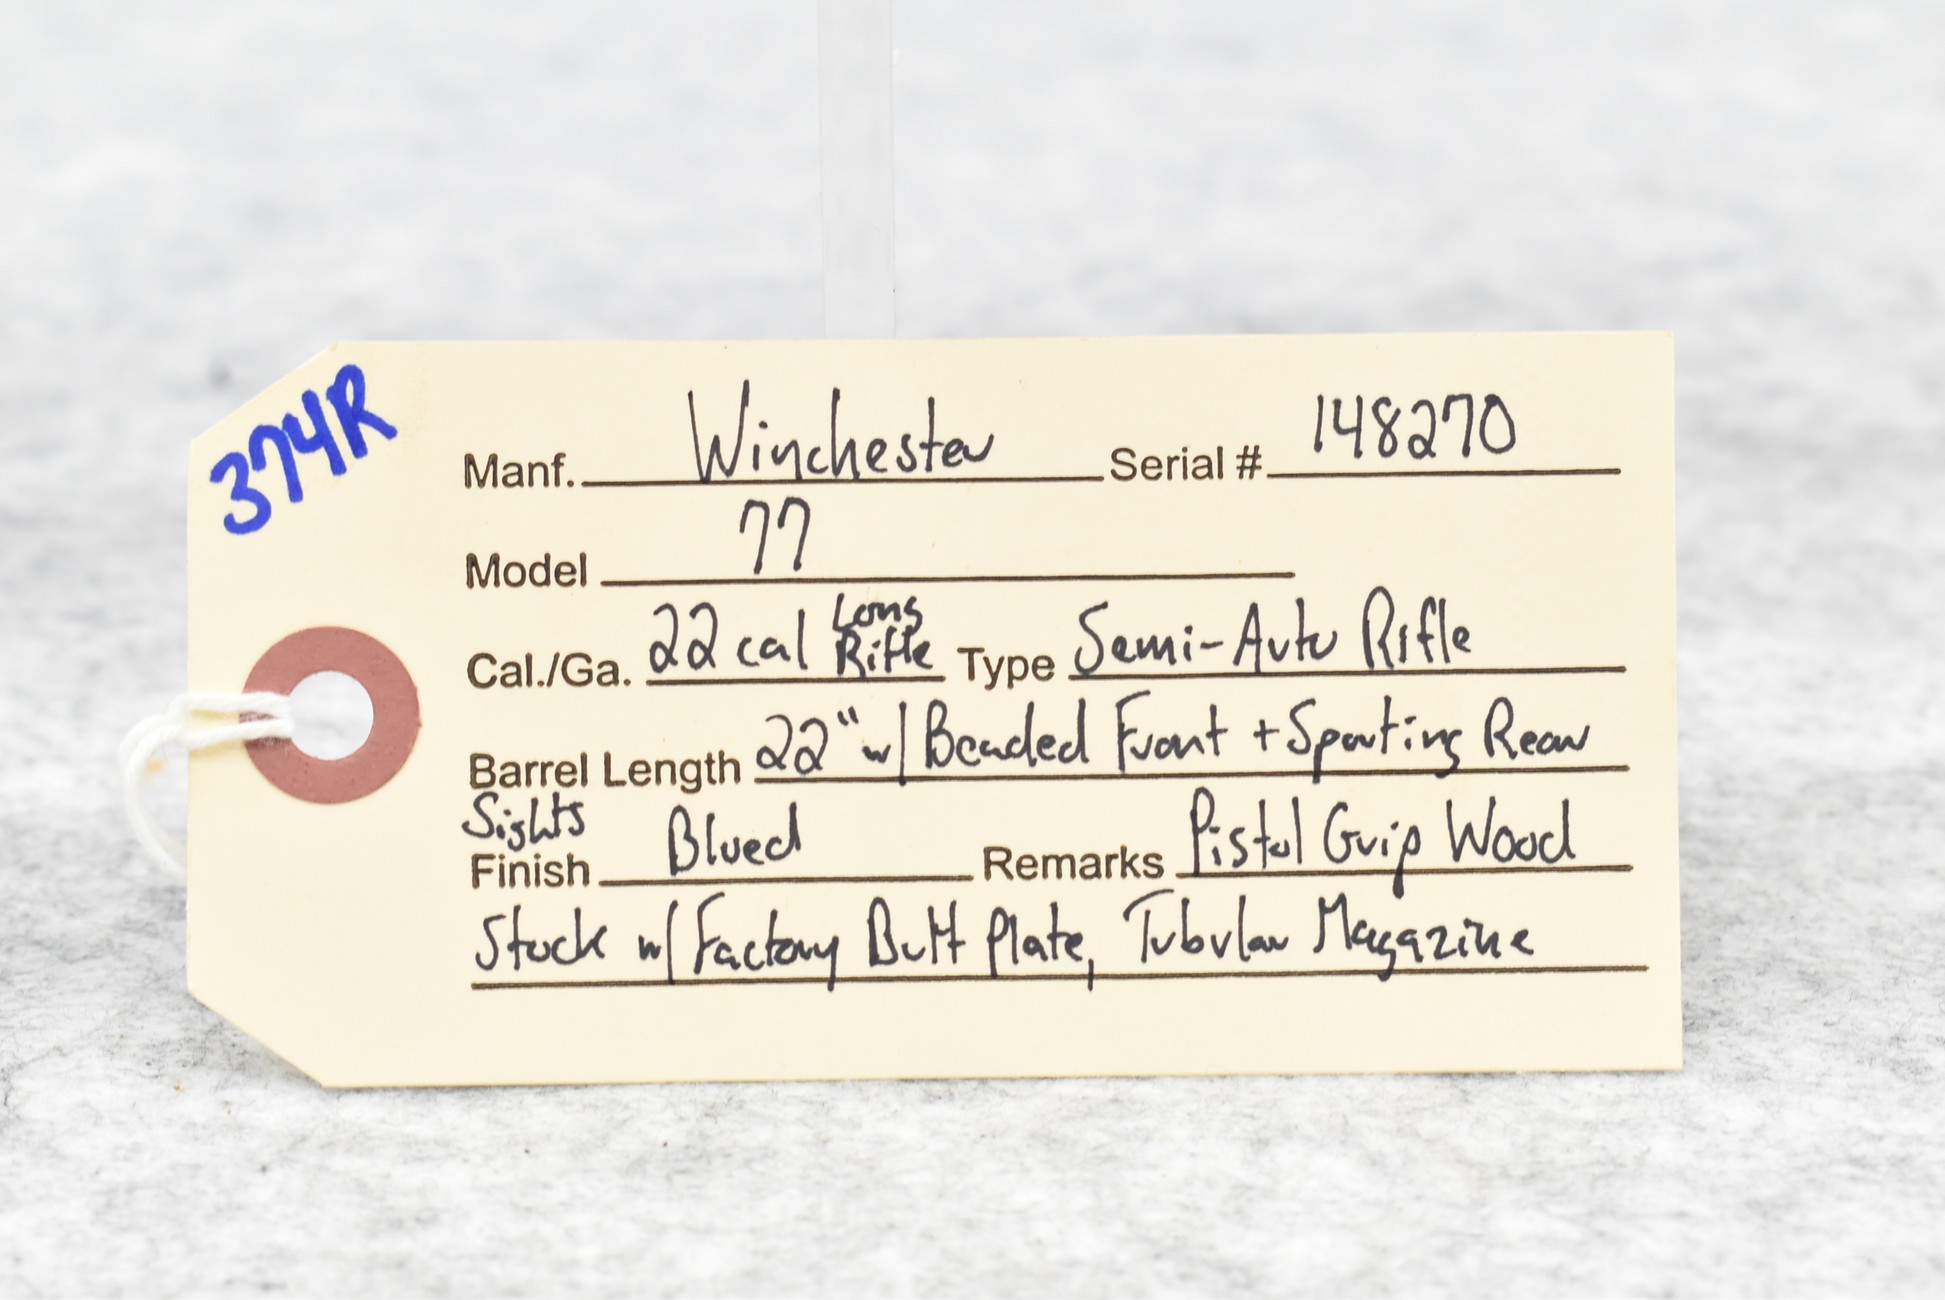 374R
Manf. Winchester Serial # 148270
Model 77
Cal./Ga. 22 cal Long Rifle Type Semi-Auto Rifle
Barrel Length 22" w/ Beaded Front + Sporting Rear
Sights
Finish Blued Remarks Pistol Grip Wood
Stock w/ Factory Butt Plate, Tubular Magazine